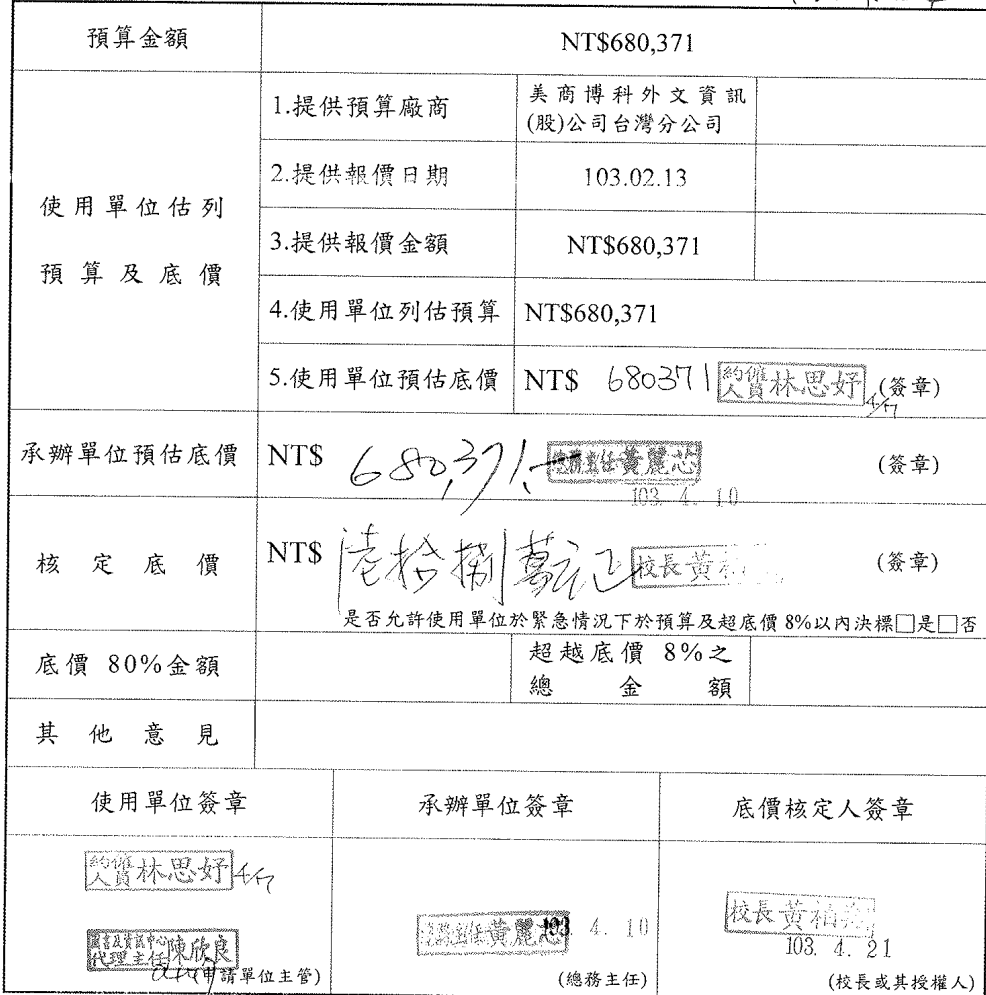 預算金額 NT$680,371
使用單位估列
預算及底價
1.提供預算廠商 美商博科外文資訊
(股)公司台灣分公司
2.提供報價日期 103.02.13
3.提供報價金額 NT$680,371
4.使用單位列估預算 NT$680,371
5.使用單位預估底價 NT$ 680371 約僱人員 林思妤 4/7 (簽章)
承辦單位預估底價 NT$ 680,371.- 總務主任黃麗芯 (簽章)
103. 4. 10
核定底價 NT$ 陸拾捌萬元正 校長黃 (簽章)
是否允許使用單位於緊急情況下於預算及超底價8%以內決標□是□否
底價 80%金額 超越底價 8%之
總金額
其他意見
使用單位簽章 承辦單位簽章 底價核定人簽章
約僱人員 林思妤 4/7
圖書及資訊中心
代理主任 陳欣良
(申請單位主管)
總務主任黃麗芯 103 4. 10
(總務主任)
校長黃柏
103. 4. 21
(校長或其授權人)